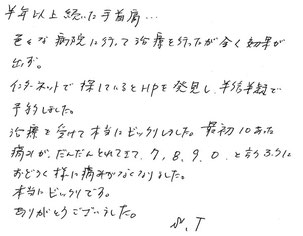 半年以上続いた手首痛…
色々な病院に行って治療を行ったが全く効果が
出ず。
インターネットで探しているとHPを発見し、半信半疑で
予約しました。
治療を受けて本当にビックリしました。最初10あった
痛みが、だんだんとれてきて、7、8、9、0、と言うように
おどろく様に痛みがなくなりました。
本当にビックリです。
ありがとうございました。
N.T